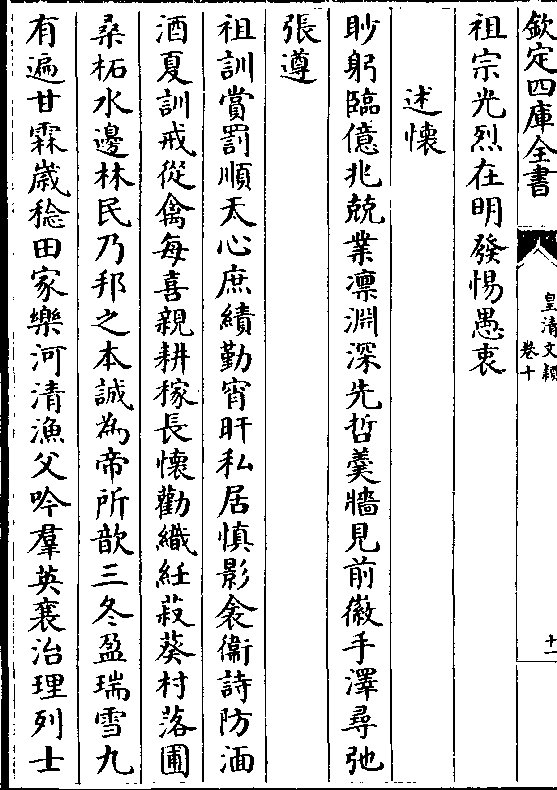 欽定四庫全書
皇清文穎
卷十
十一
祖宗光烈在明發惕愚衷
述懷
眇躬臨億兆兢業凛淵深先哲羮牆見前徽手澤尋弛
張遵
祖訓賞罰順天心庶績勤宵旰私居慎影衾衞詩防湎
酒夏訓戒從禽每喜親耕稼長懷勸織紝菽葵村落圃
桑柘水邊林民乃邦之本誠為帝所歆三冬盈瑞雪九
有遍甘霖歲稔田家樂河清漁父吟羣英襄治理列士